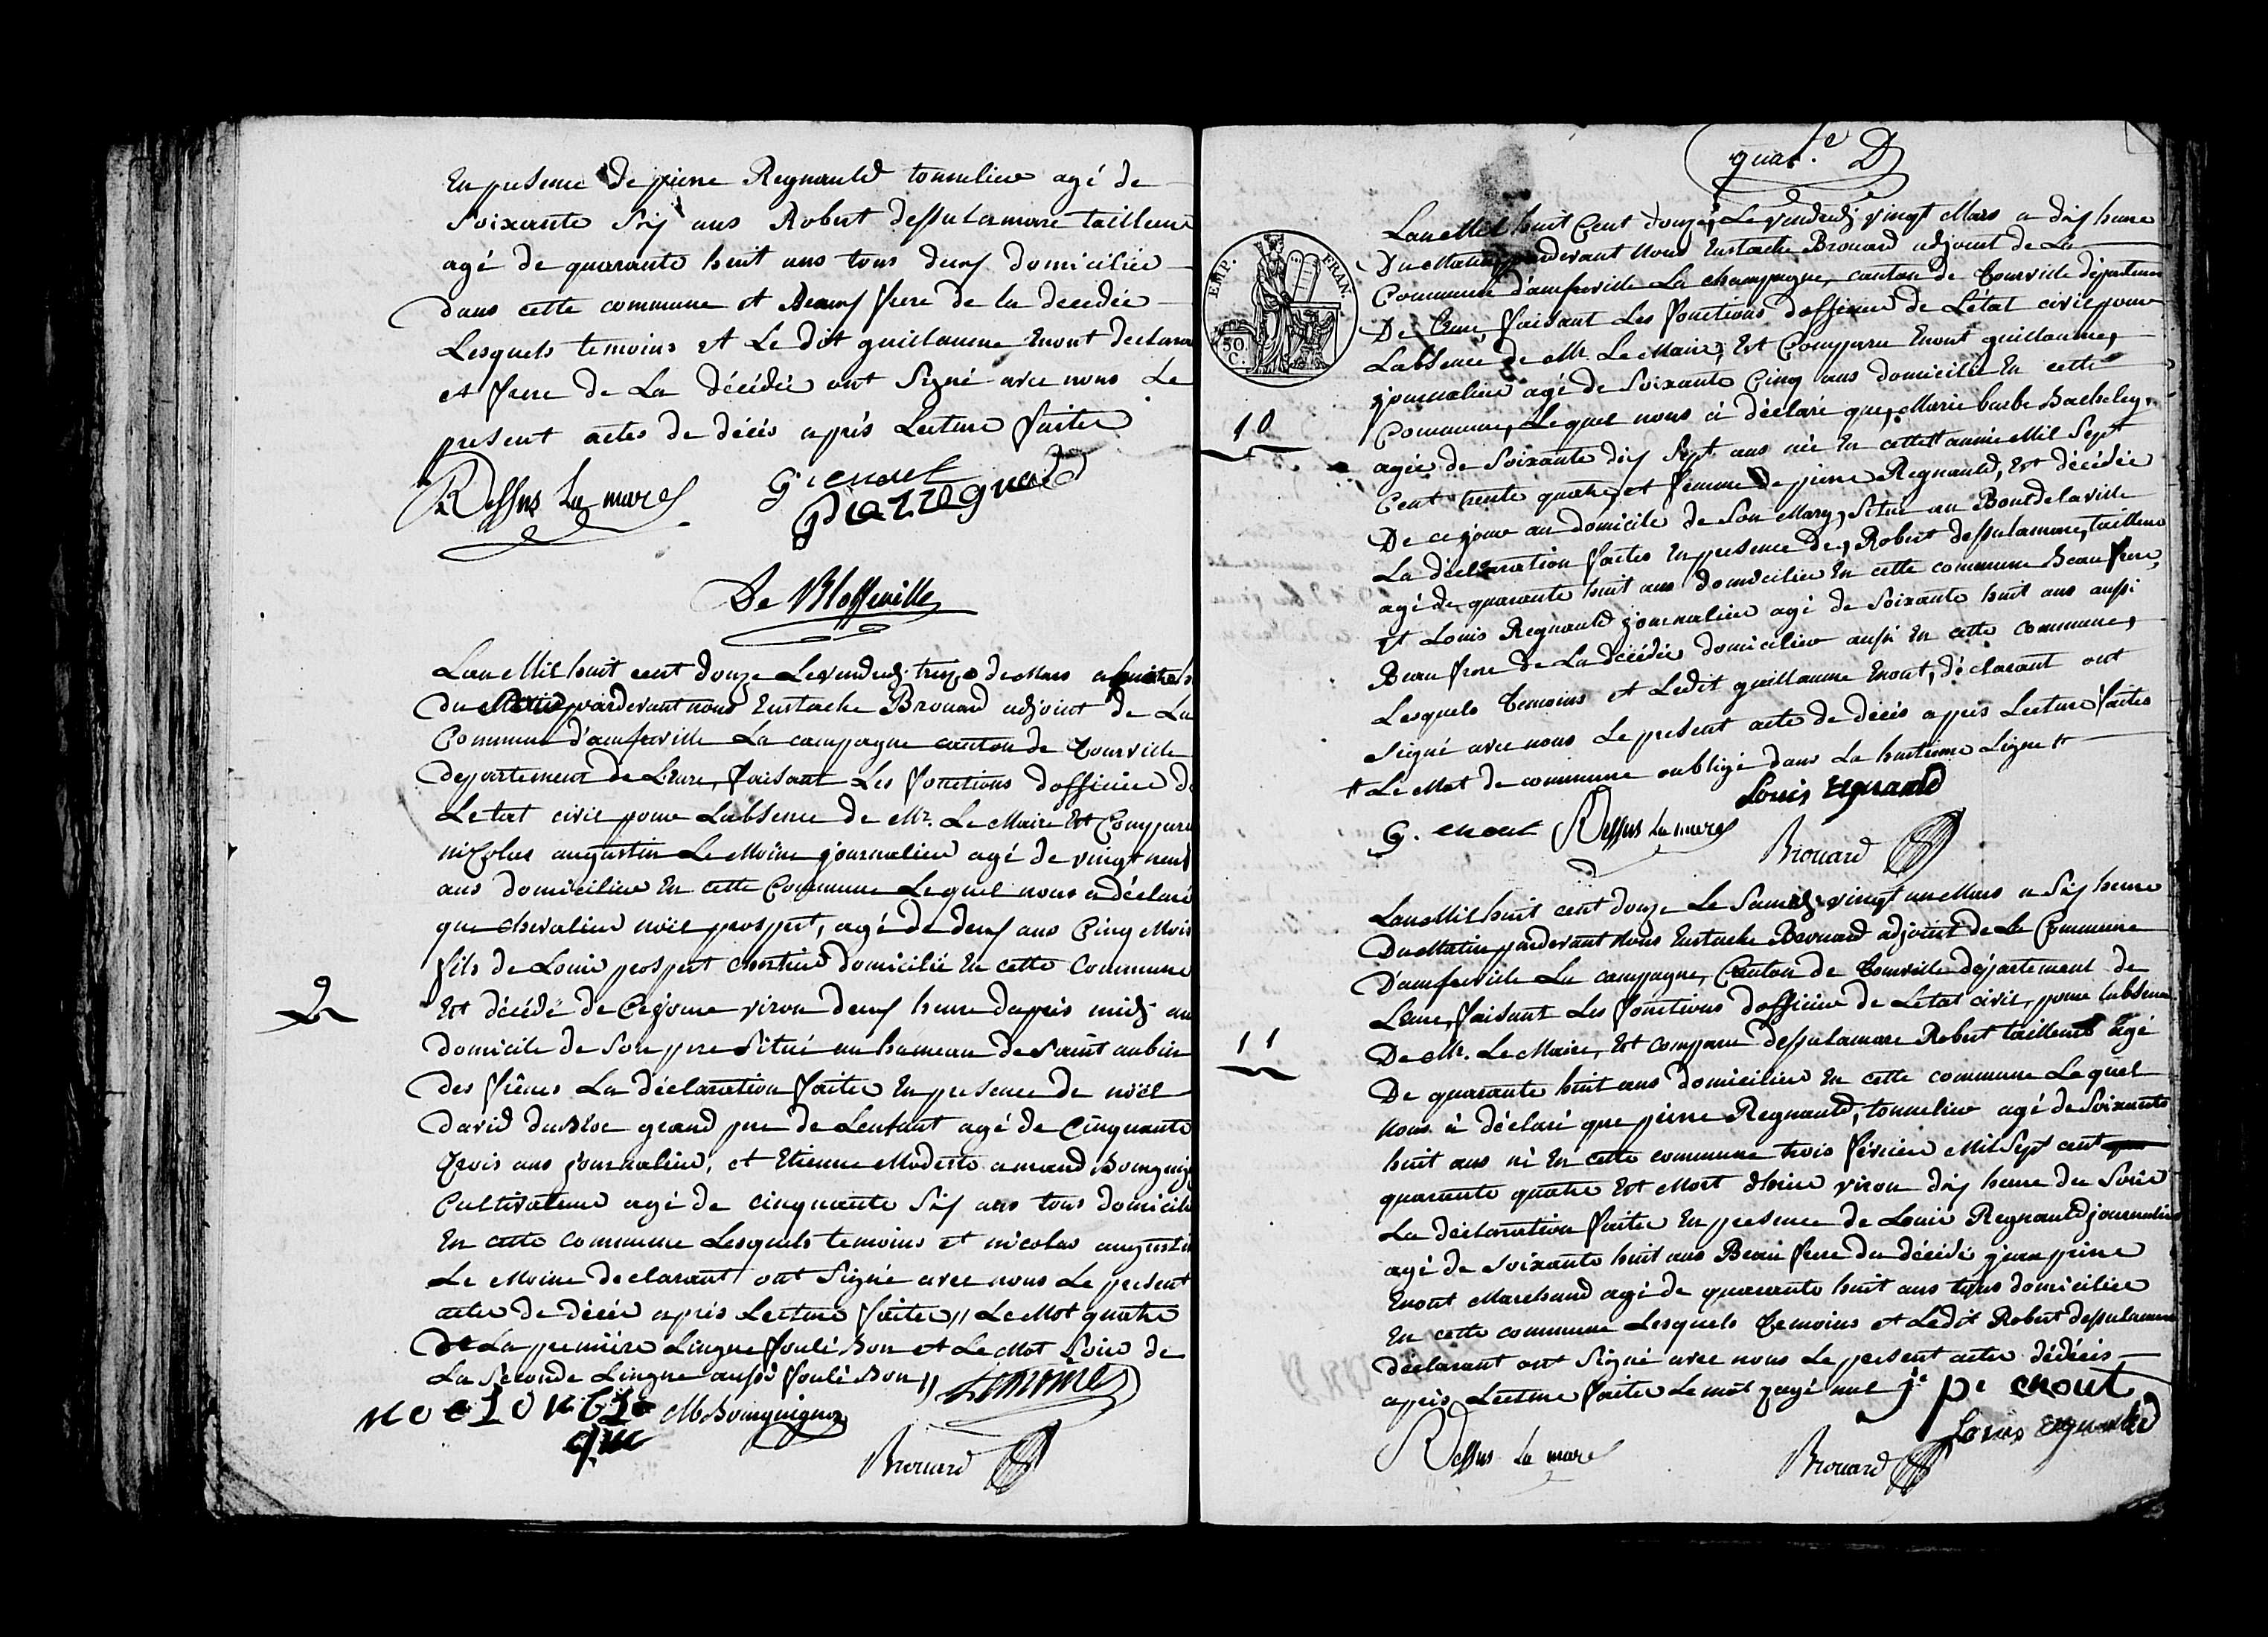 En presence de pierre Regnauld tonnelier agé de
Soixante Six ans Robert dessulamare tailleur
agé de quarante huit ans tous deux domicilié
dans cette commune et Beaux frere de la decedée
Lesquels temoins et Le dit guillaume Enout declaran
et frere de La décédée ont Signé avec nous Le
present actes de décès après Lecture faites
R Dessus La mare G. enout
pierre regnauld
De Blosseville
Lan Mil huit cent douze Le vendredi treize de Mars a
du pardevant nous Eustache Brouard adjoint de La
Commune d'amfreville La campagne canton de Tourville
departement de Leure, faisant Les fonctions dofficier de
Letat civil pour Labsence de Mr. Le Maire Est Comparu
nicolas augustin Le Moine journalier agé de vingt neuf
ans domicilier En cette Commune Lequel nous a déclaré
que chevalier noël prospert, agé de deux ans Cinq Mois
fils de Louis prospert domicilié En cette Commune
Est décédé de Ce jour viron deux heure dapres midi au
domicile de Son pere Situé au hameau de Saint aubin
des frênes La déclaration faites En presence de noël
david duBloc grand pere de Lenfant agé de Cinquante
trois ans journalier, et Etienne Modeste amand Bourguig
Cultivateur agé de cinquante Six ans tous domicilié
En cette commune Lesquels temoins et nicolas augustin
Le Moine declarant ont Signé avec nous Le present
actes de décès après Lecture faites // Le Mot quatre
de La premiere Lingne foulé Bon et Le Mot Soir de
La Seconde Lingne aussi foulé Bon // Lemoine
9
MBourguignon
Brouard
quat.e D
EMP. FRAN.
50 C.
Lan Mil huit Cent douze, Le vendredi vingt Mars a dix heure
Du Matin pardevant Nous Eustache Brouard adjoint de La
Commune d'amfreville La champagne, canton de Tourville departemen
De Leure faisant Les fonctions dofficier de Létat civil pour
Labsence de Mr. Le Maire, Est Comparu Enout guillaume,
journalier agé de Soixante Cinq ans domicilié En cette
10
Commune, Lequel nous à déclaré que, Marie barbe Bacheley,
agée de Soixante dix Sept ans née En cette # année Mil Sept
Cent trente quatre, et femme de pierre Regnauld, Est décédée
De ce jour au domicile de Son Mary, Situé au Bout de la ville
La déclaration faites En presence de, Robert dessulamare, tailleur
agé de quarante huit ans domicilier En cette commune Beau frere,
Et Louis Regnauld journalier agé de Soixante huit ans aussi
Beau frere de La décédée domicilier aussi En cette commune,
Lesquels Temoins et Ledit guillaume Enout, déclarant ont
Signé avec nous Le present acte de décès apres Lecture faites
# Le Mot de commune oubligé dans La huitieme Ligne #
Louis regnauld
G. enout R Dessus La mare
Brouard
Lan Mil huit cent douze Le Samedi vingt un Mars a Six heure
Du Matin pardevant Nous Eustache Brouard adjoint de La Commune
D'amfreville La campagne, Canton de Tourville département de
Leure, faisant Les fonctions dofficier de Letat civil, pour Labsence
11
De Mr. Le Maire, Est comparu dessulamare Robert tailleur agé
De quarante huit ans domicilier En cette commune Lequel
nous à déclaré que pierre Regnauld, tonnelier agé de Soixante
huit ans né En cette commune trois février Mil Sept cent
quarante quatre Est Mort dhier viron dix heure du Soir
La déclaration faites En presence de Louis Regnauld journalier
agé de Soixante huit ans Beau frere du décédé jean pierre
Enout Marchand agé de quarante huit ans tous domicilier
En cette commune Lesquels Temoins et Ledit Robert dessulamare
déclarant ont Signé avec nous Le present actes dédécès
après Lecture faites Le mot rayé nul j.e p.e enout
Louis regnauld
R Dessus La mare Brouard